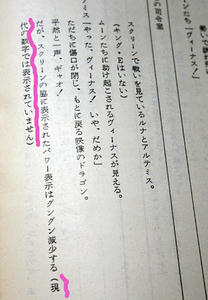 の司令室
たち「ヴィーナス！」
スクリーンで戦いを見ているルナとアルテミス。
（キング・Eはいない）
ムーンたちに助け起こされるヴィーナスが見える。
テミス「やった、ヴィーナス！　いや、だめか」
ただちに傷口が閉じ、もとに戻る映像のドラゴン。
平然と一声、ギャオ！
だが、スクリーンの脇に表示されたパワー表示はグングン減少する（現
代の数字では表示されていません）